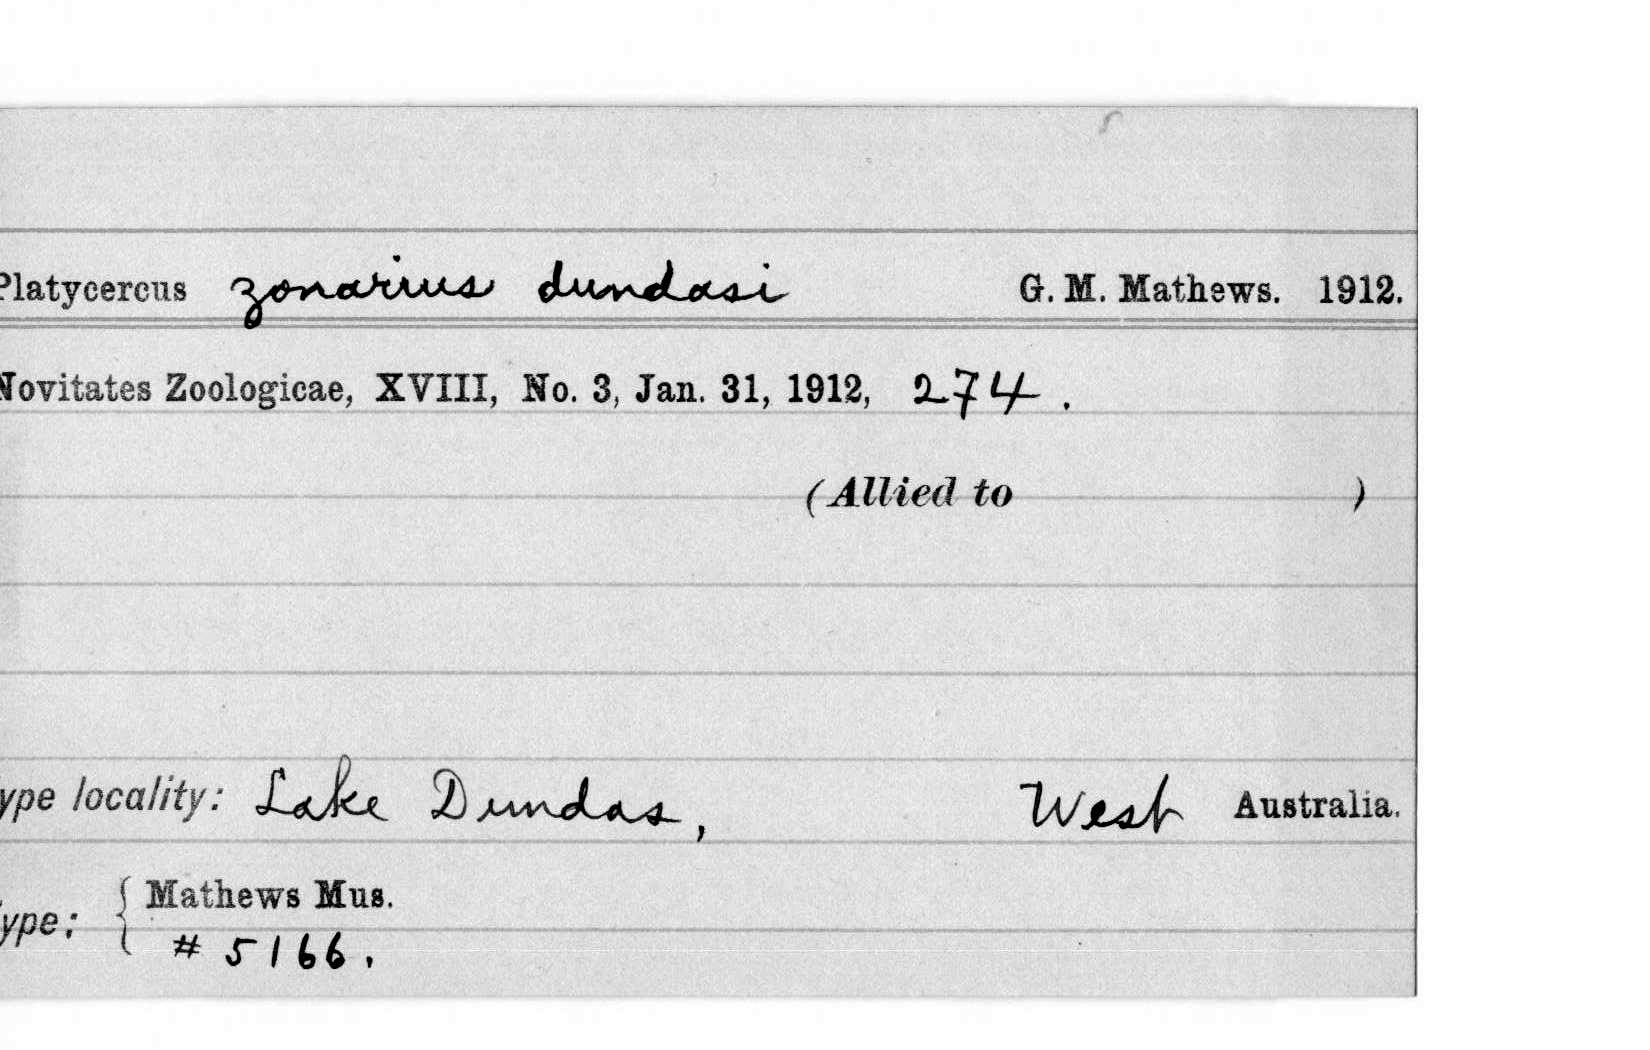 Platycercus zonarius dundasi G. M. Mathews. 1912.
Novitates Zoologicae, XVIII, No. 3, Jan. 31, 1912, 274.
(Allied to )
ype locality: Lake Dundas, West Australia.
ype: { Mathews Mus.
# 5166.